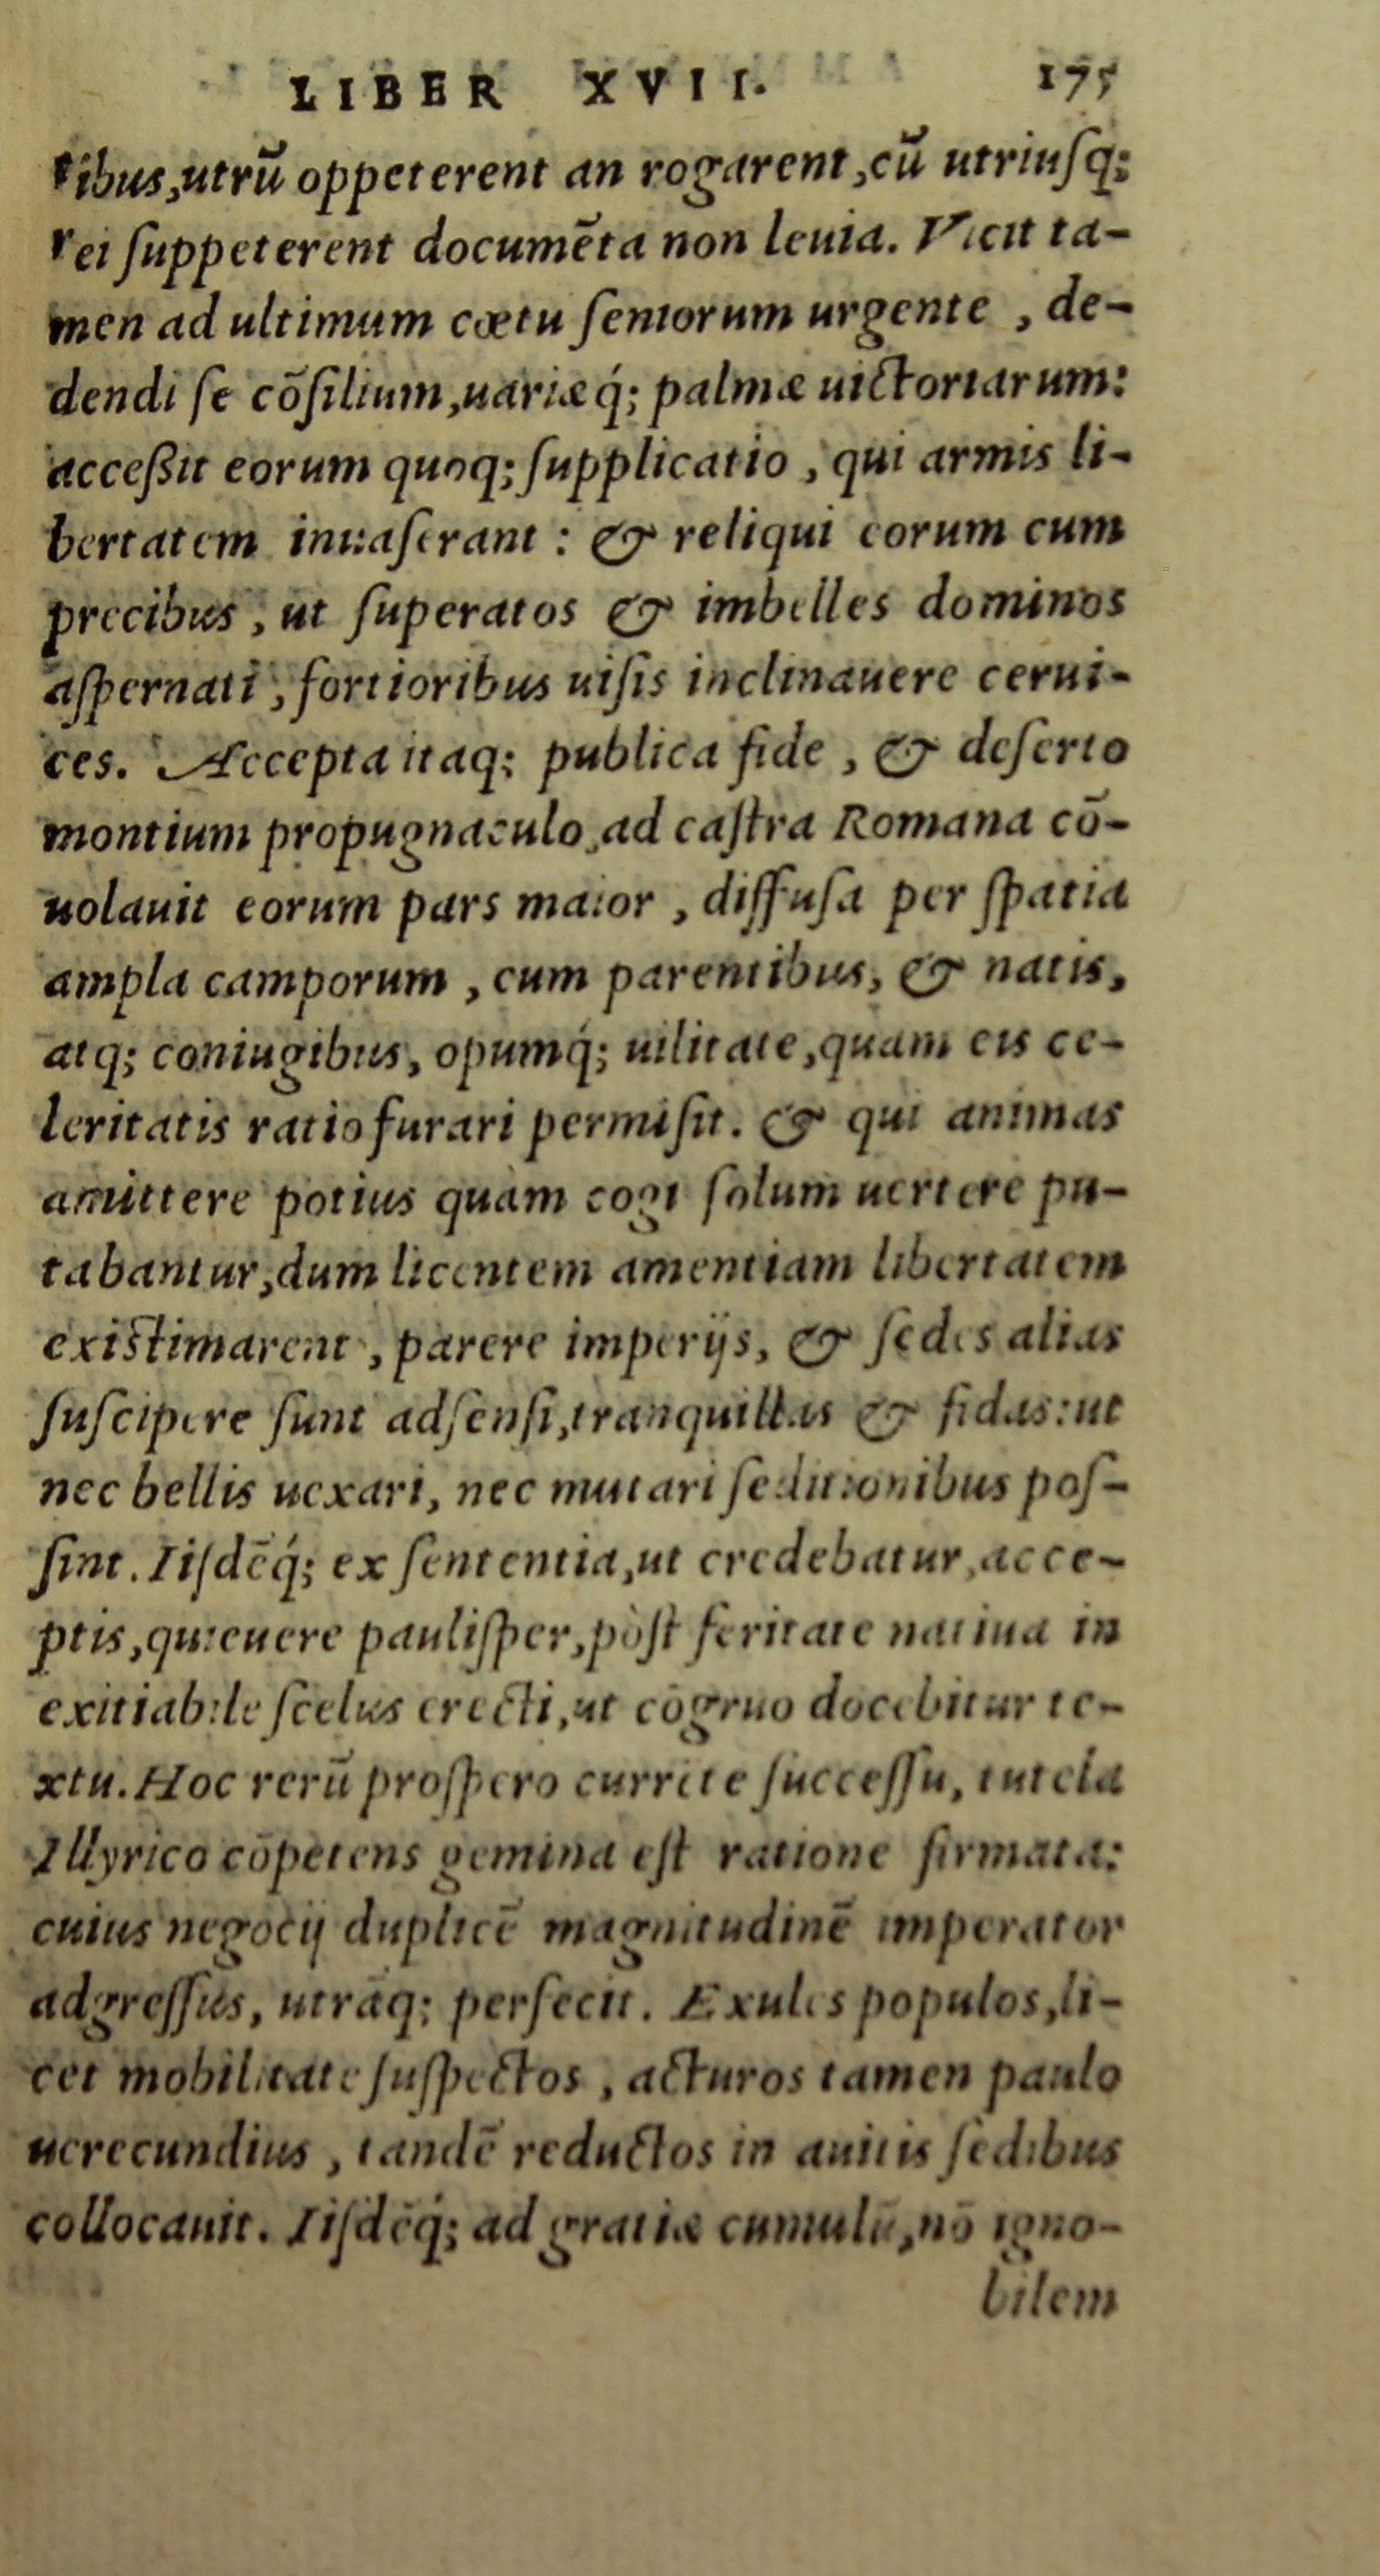 LIBER XVII. 175
tibus,utrū oppeterent an rogarent,cū utriuſq;
rei ſuppeterent documēta non leuia. Vicit ta-
men ad ultimum cœtu ſeniorum urgente , de-
dendi ſe cōſilium,uariæq́; palmæ uictoriarum:
acceßit eorum quoq; ſupplicatio , qui armis li-
bertatem inuaſerant : & reliqui eorum cum
precibus , ut ſuperatos & imbelles dominos
aſpernati , fortioribus uiſis inclinauere cerui-
ces. Accepta itaq; publica fide , & deſerto
montium propugnaculo,ad caſtra Romana cō-
uolauit eorum pars maior , diffuſa per ſpatia
ampla camporum , cum parentibus, & natis,
atq; coniugibus, opumq́; uilitate,quam eis ce-
leritatis ratio furari permiſit. & qui animas
amittere potius quàm cogi ſolum uertere pu-
tabantur,dum licentem amentiam libertatem
existimarent , parere imperijs, & ſedes alias
ſuſcipere ſunt adſenſi,tranquillas & fidas:ut
nec bellis uexari, nec mutari ſeditionibus poſ-
ſint. Iiſdēq́; ex ſententia,ut credebatur,acce-
ptis,quieuere pauliſper,pòſt feritate natiua in
exitiabile ſcelus erecti,ut cōgruo docebitur te-
xtu. Hoc rerū proſpero currēte ſucceſſu, tutela
Illyrico cōpetens gemina eſt ratione firmata:
cuius negocij duplicē magnitudinē imperator
adgreſſus, utrāq; perfecit. Exules populos,li-
cet mobilitate ſuſpectos , acturos tamen paulo
uerecundius , tandē reductos in auitis ſedibus
collocauit. Iiſdēq́; ad gratiæ cumulū,nō igno-
bilem